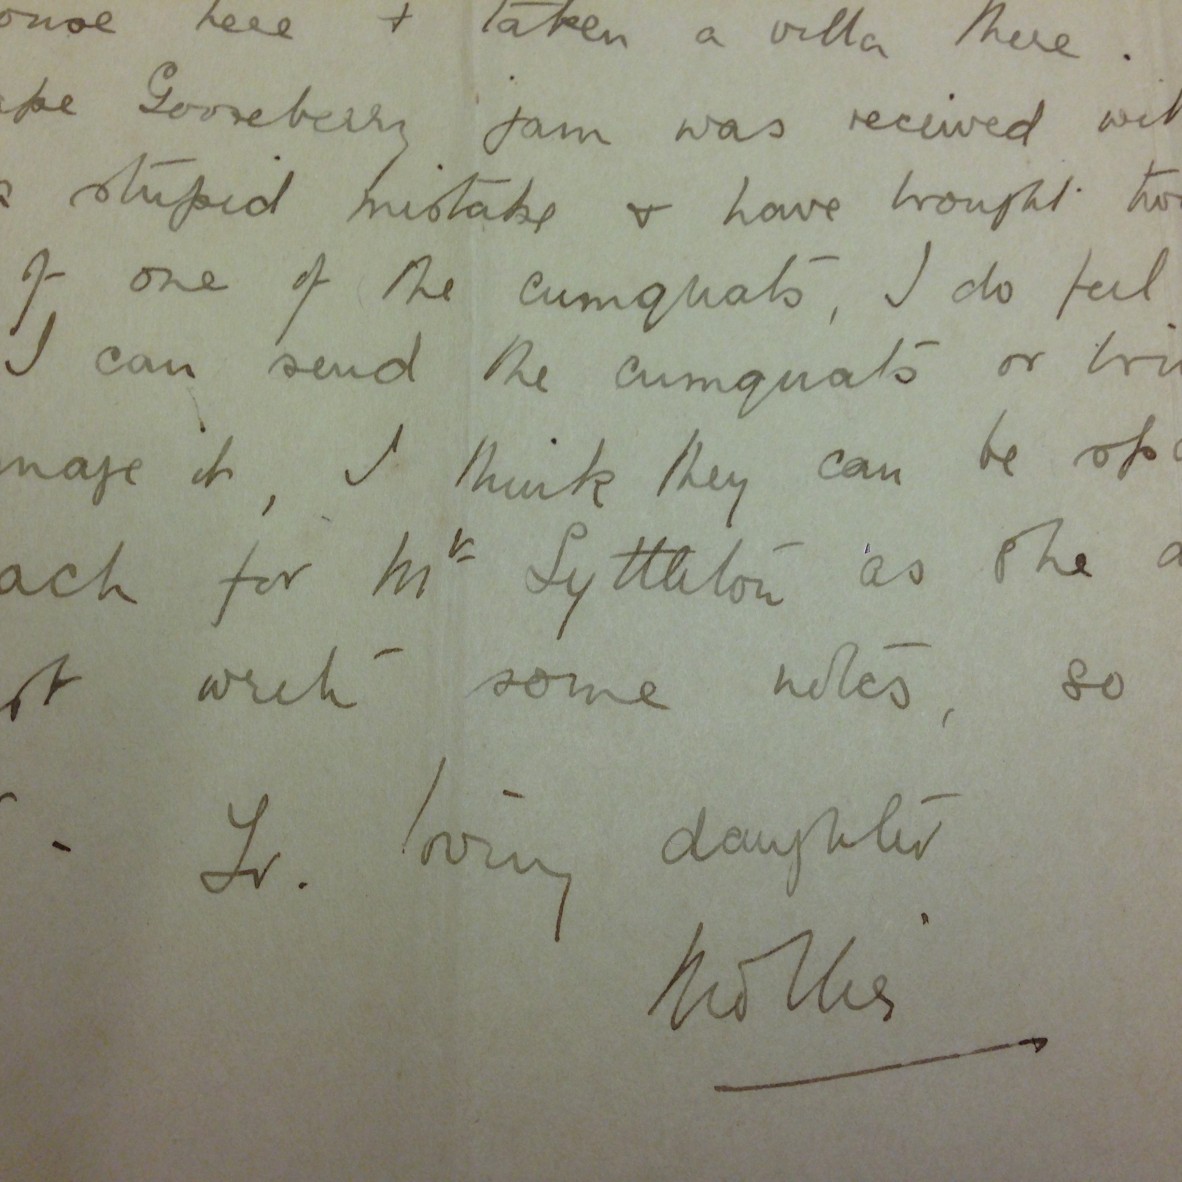 ouse here + taken a villa there.
ape Gooseberry jam was received wit
a stupid mistake & have brought two
of one of the cumquats, I do feel
I can send the cumquats or bri
mage it, I think they can be
ach for Mr Lyttleton as she
write some notes, so
Yr. loving daughter
Mollie